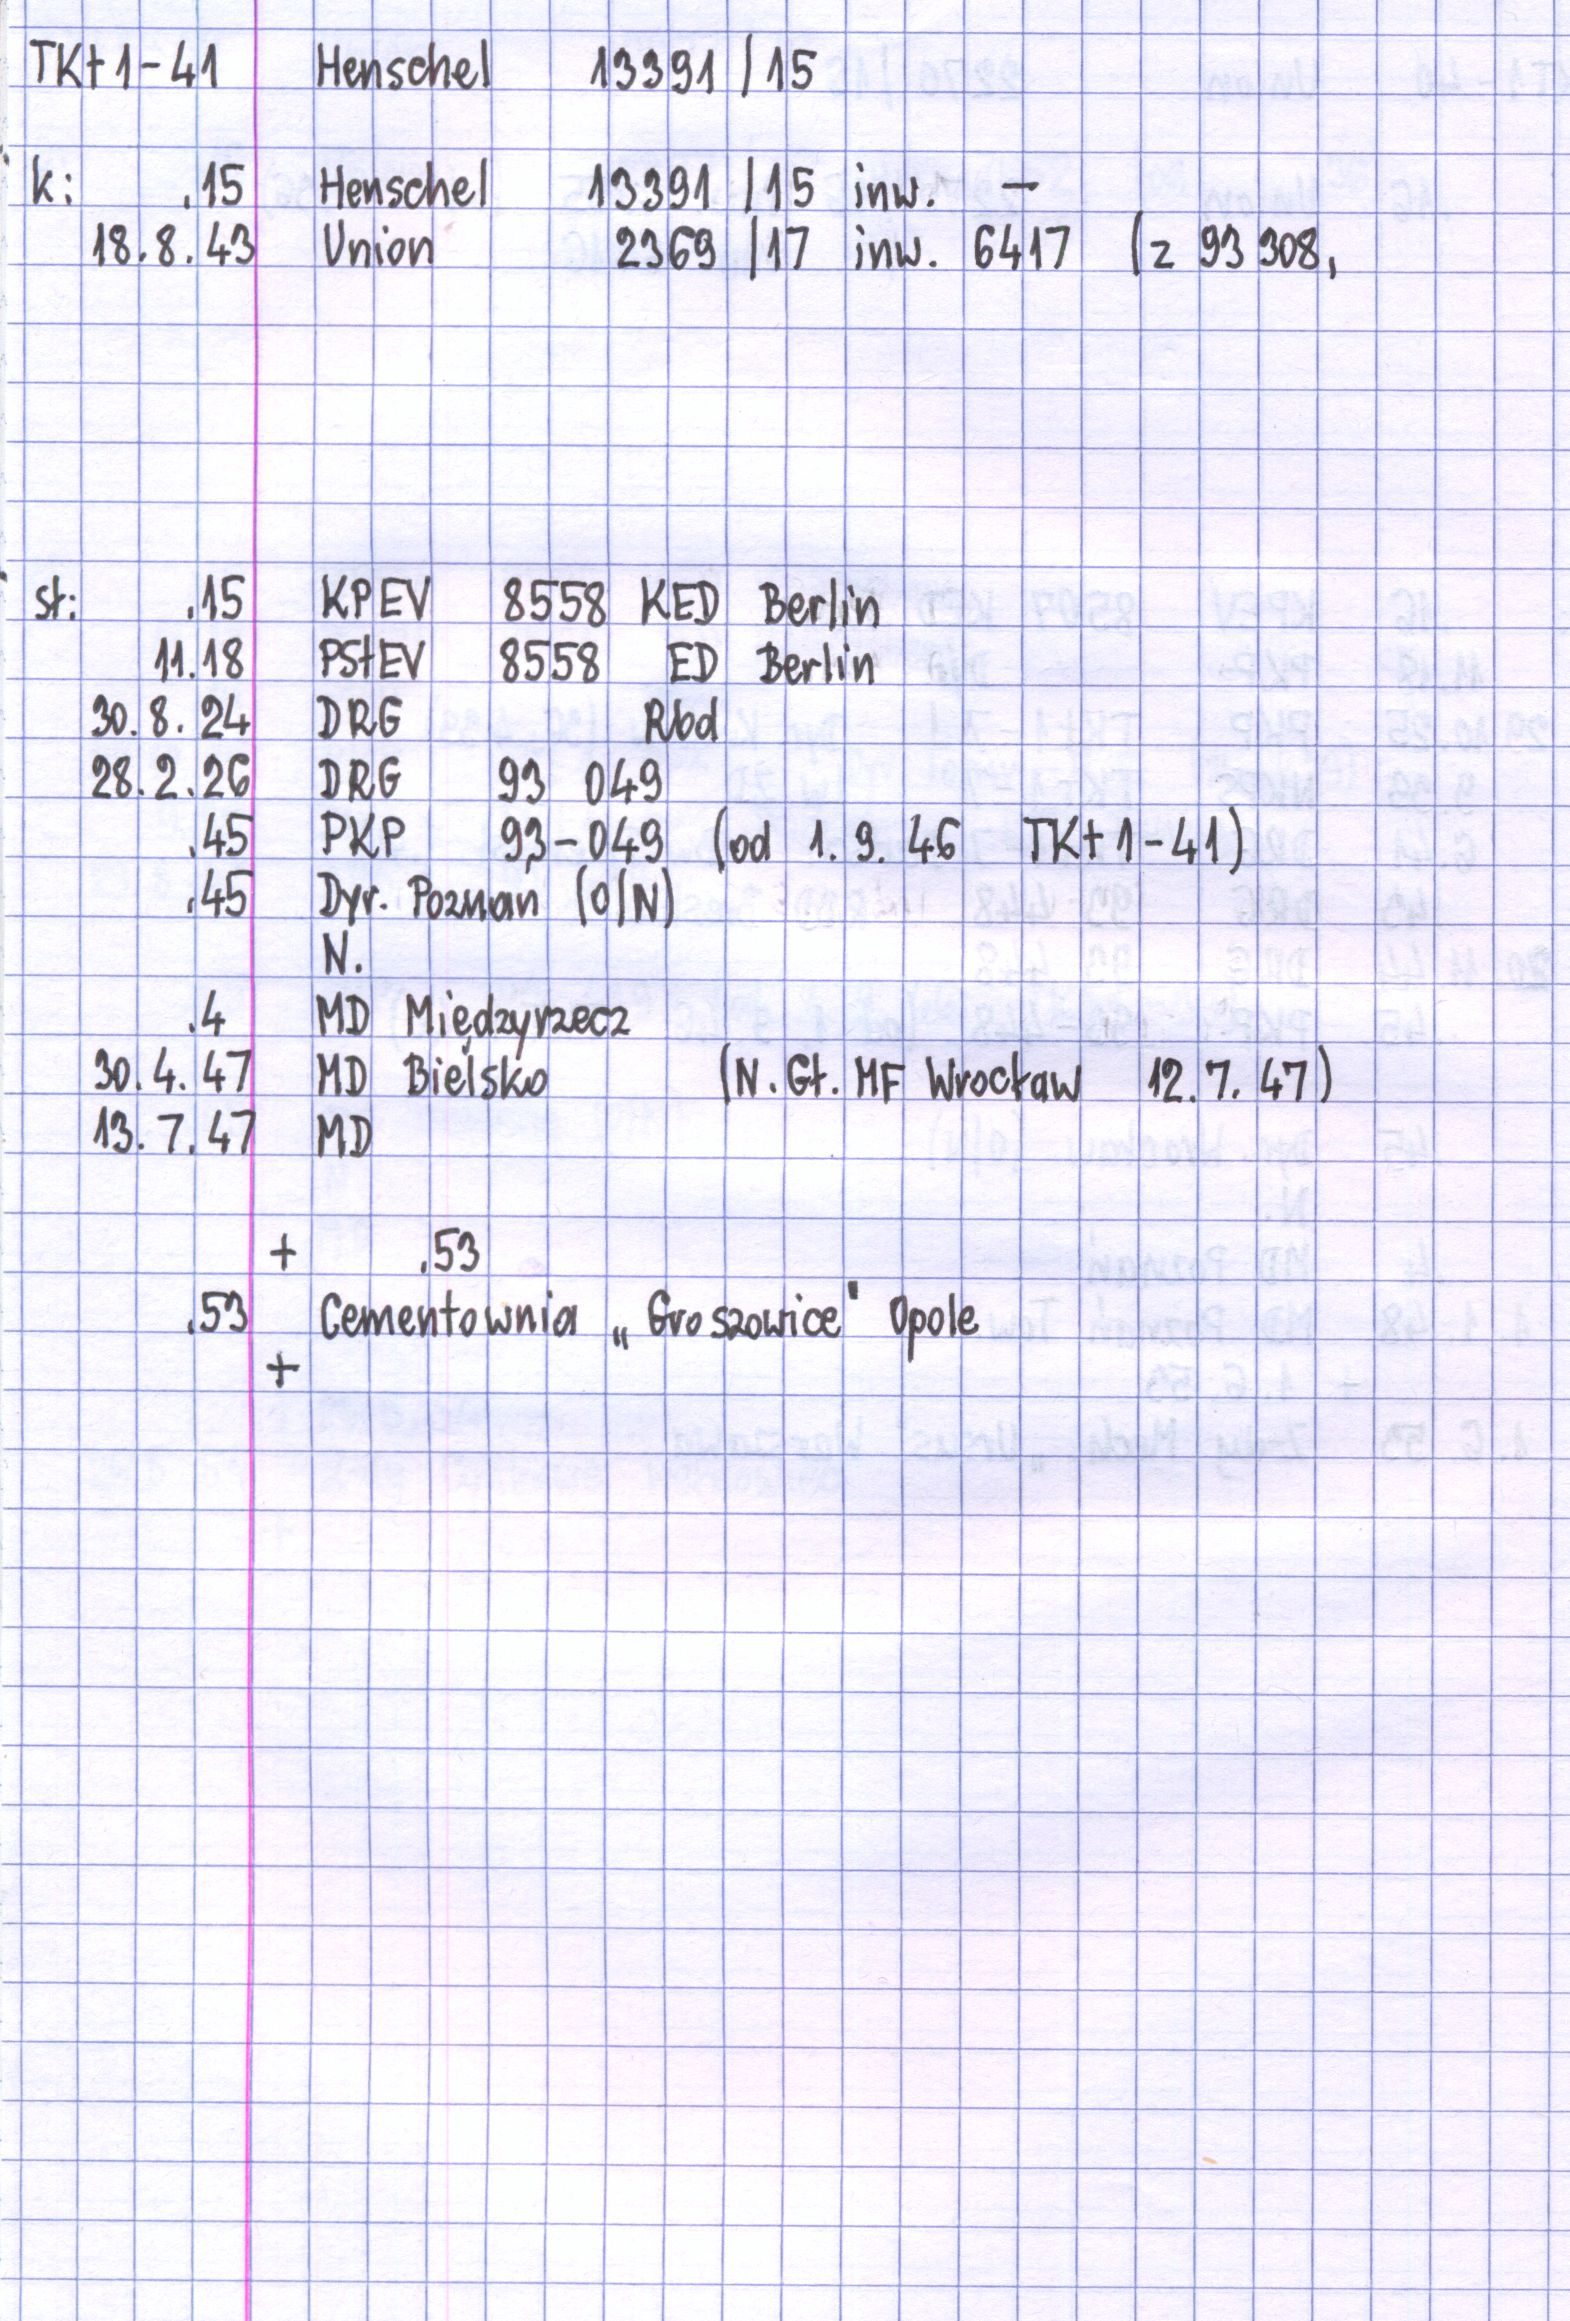 TKt1-41 Henschel 13391/15
k: .15 Henschel 13391/15 inw. -
18.8.43 Union 2369/17 inw. 6417 (z 93 308,
st: .15 KPEV 8558 KED Berlin
11.18 PStEV 8558 ED Berlin
30.8.24 DRG Rbd
28.2.26 DRG 93 049
.45 PKP 93-049 (od 1.9.46 TKt1-41)
.45 Dyr. Poznań (O/N)
N.
.4 MD Międzyrzecz
30.4.47 MD Bielsko (N.Gł. MF Wrocław 12.7.47)
13.7.47 MD
+ .53
.53 Cementownia „Groszowice" Opole
+